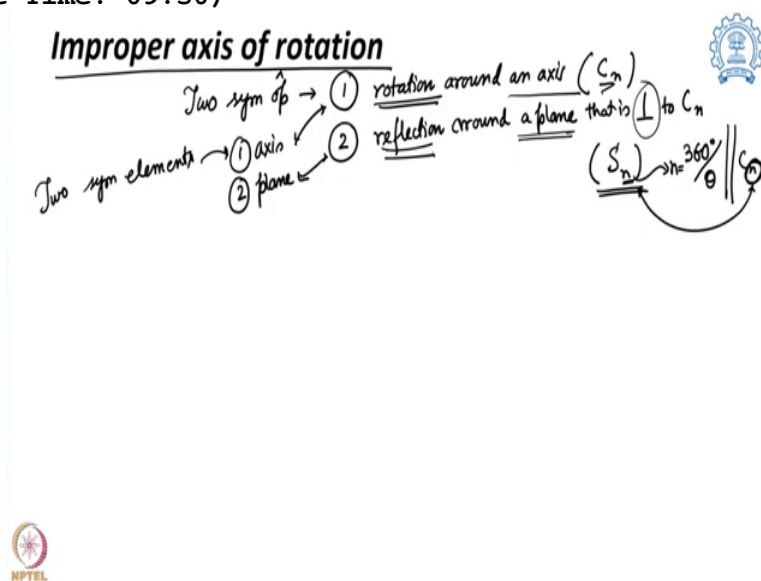 Time: 09:30)
Improper axis of rotation
Two sym ôp → ① rotation around an axis (Cn)
② reflection around a plane that is ⊥ to Cn
Two sym elements → ① axis
② plane
(Sn) → n= 360°/θ || Cn
NPTEL